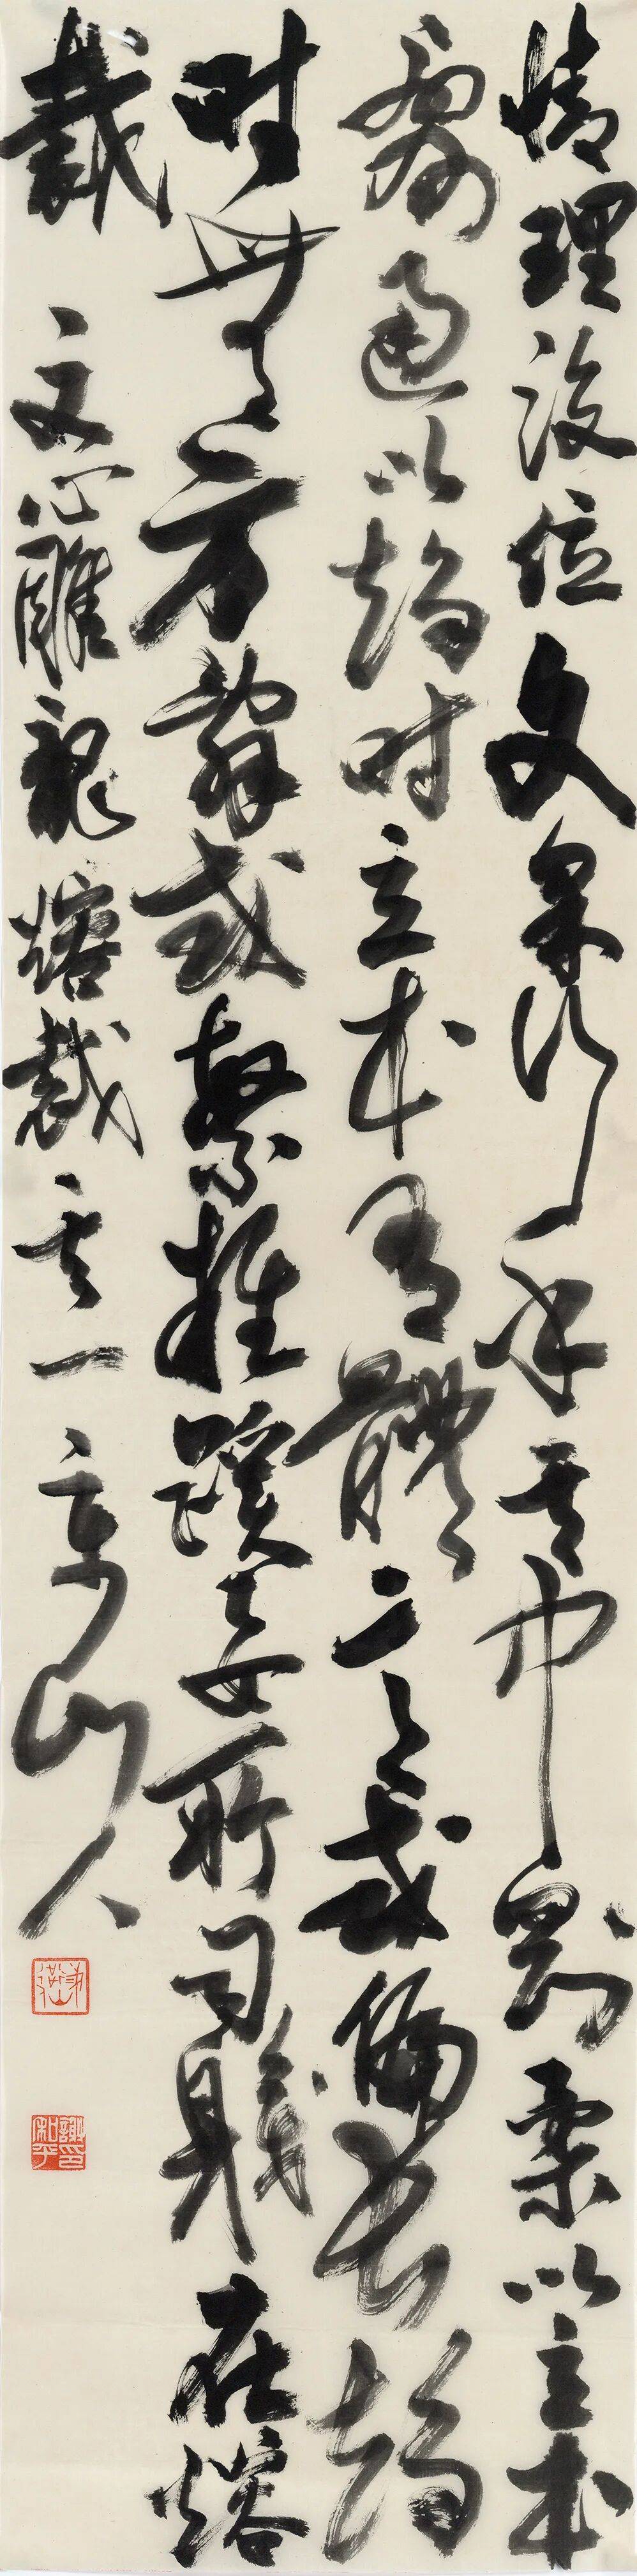 情理設位文采行乎其中剛柔以立本
變通以趨時立本有體意或偏長趨
時無方辭或繁雜蹊要所司職在熔
裁 文心雕龍熔裁其一 京山人
謝和平印